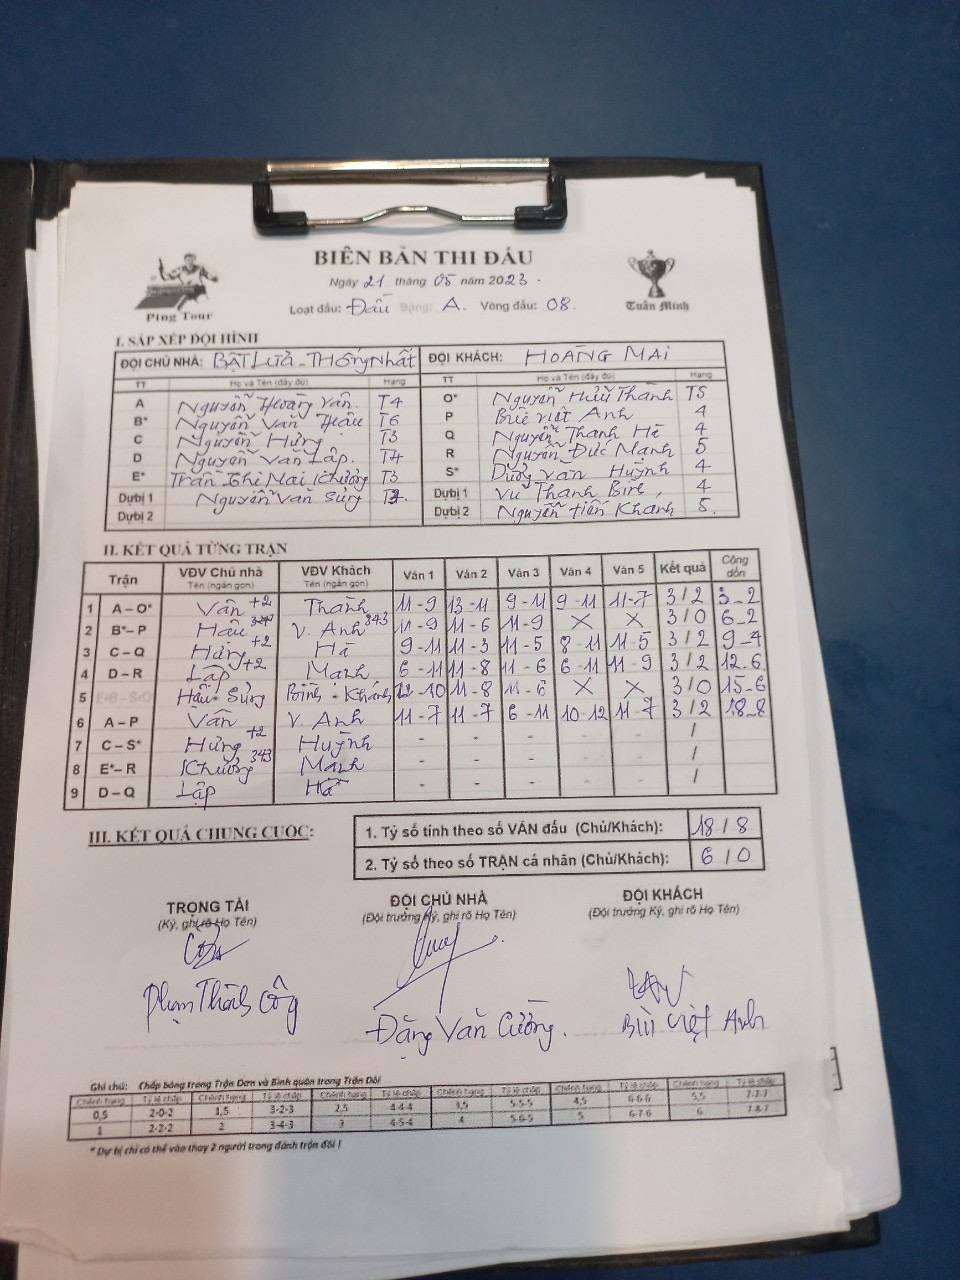 BIÊN BẢN THI ĐẤU
Ngày 21 tháng 05 năm 2023.
Loạt đấu: Đấu Bảng: A. Vòng đấu: 08.
Ping Tour
Tuấn Minh
I. SẮP XẾP ĐỘI HÌNH
ĐỘI CHỦ NHÀ: BẬT LỬA - THỐNG NHẤT ĐỘI KHÁCH: HOÀNG MAI
TT Họ và Tên (đầy đủ) Hạng TT Họ và Tên (đầy đủ) Hạng
A Nguyễn Hoàng Vân. T4 O* Nguyễn Hữu Thành T5
B* Nguyễn Văn Hậu T6 P Bùi Việt Anh 4
C Nguyễn Hưng T3 Q Nguyễn Thanh Hà 4
D Nguyễn Văn Lập. T4 R Nguyễn Đức Mạnh 5
E* Trần Thị Mai Khương T3 S* Dương Văn Huỳnh 4
Dự bị 1 Nguyễn Văn Sửng Dự bị 1 Vũ Thanh 4
Dự bị 2 Dự bị 2 Nguyễn Tiến Khanh 5.
II. KẾT QUẢ TỪNG TRẬN
Trận VĐV Chủ nhà Tên (ngắn gọn) VĐV Khách Tên (ngắn gọn) Ván 1 Ván 2 Ván 3 Ván 4 Ván 5 Kết quả Cộng dồn
1 A – O* Vân +2 Thành 11-9 13-11 9-11 9-11 11-7 3/2 3-2
2 B*– P Hậu V. Anh 343 11-9 11-6 11-9 X X 3/0 6-2
3 C – Q Hưng +2 Hà 9-11 11-3 11-5 8-11 11-5 3/2 9-4
4 D – R Lập +2 Mạnh 6-11 11-8 11-6 6-11 11-9 3/2 12-6
5 E+B – S+O Hậu - Sửng 12-10 11-8 11-6 X X 3/0 15-6
6 A – P Vân V. Anh 11-7 11-7 6-11 10-12 11-7 3/2 18-8
7 C – S* Hưng +2 Huỳnh - - - - - /
8 E*– R Khương 343 Mạnh - - - - - /
9 D – Q Lập Hà - - - - - /
III. KẾT QUẢ CHUNG CUỘC:
1. Tỷ số tính theo số VÁN đấu (Chủ/Khách): 18 / 8
2. Tỷ số theo số TRẬN cá nhân (Chủ/Khách): 6 / 0
TRỌNG TÀI ĐỘI CHỦ NHÀ ĐỘI KHÁCH
(Ký, ghi rõ Họ Tên) (Đội trưởng Ký, ghi rõ Họ Tên) (Đội trưởng Ký, ghi rõ Họ Tên)
Phạm Thành Công Đặng Văn Cường. Bùi Việt Anh
Ghi chú: Chấp bóng trong Trận Đơn và Bình quân trong Trận Đôi
Chênh hạng Tỷ lệ chấp Chênh hạng Tỷ lệ chấp Chênh hạng Tỷ lệ chấp Chênh hạng Tỷ lệ chấp Chênh hạng Tỷ lệ chấp Chênh hạng Tỷ lệ chấp
0,5 2-0-2 1,5 3-2-3 2,5 4-4-4 3,5 5-5-5 4,5 6-6-6 5,5 7-7-7
1 2-2-2 2 3-4-3 3 4-5-4 4 5-6-5 5 6-7-6 6 7-8-7
* Dự bị chỉ có thể vào thay 2 người trong đánh trận đôi !